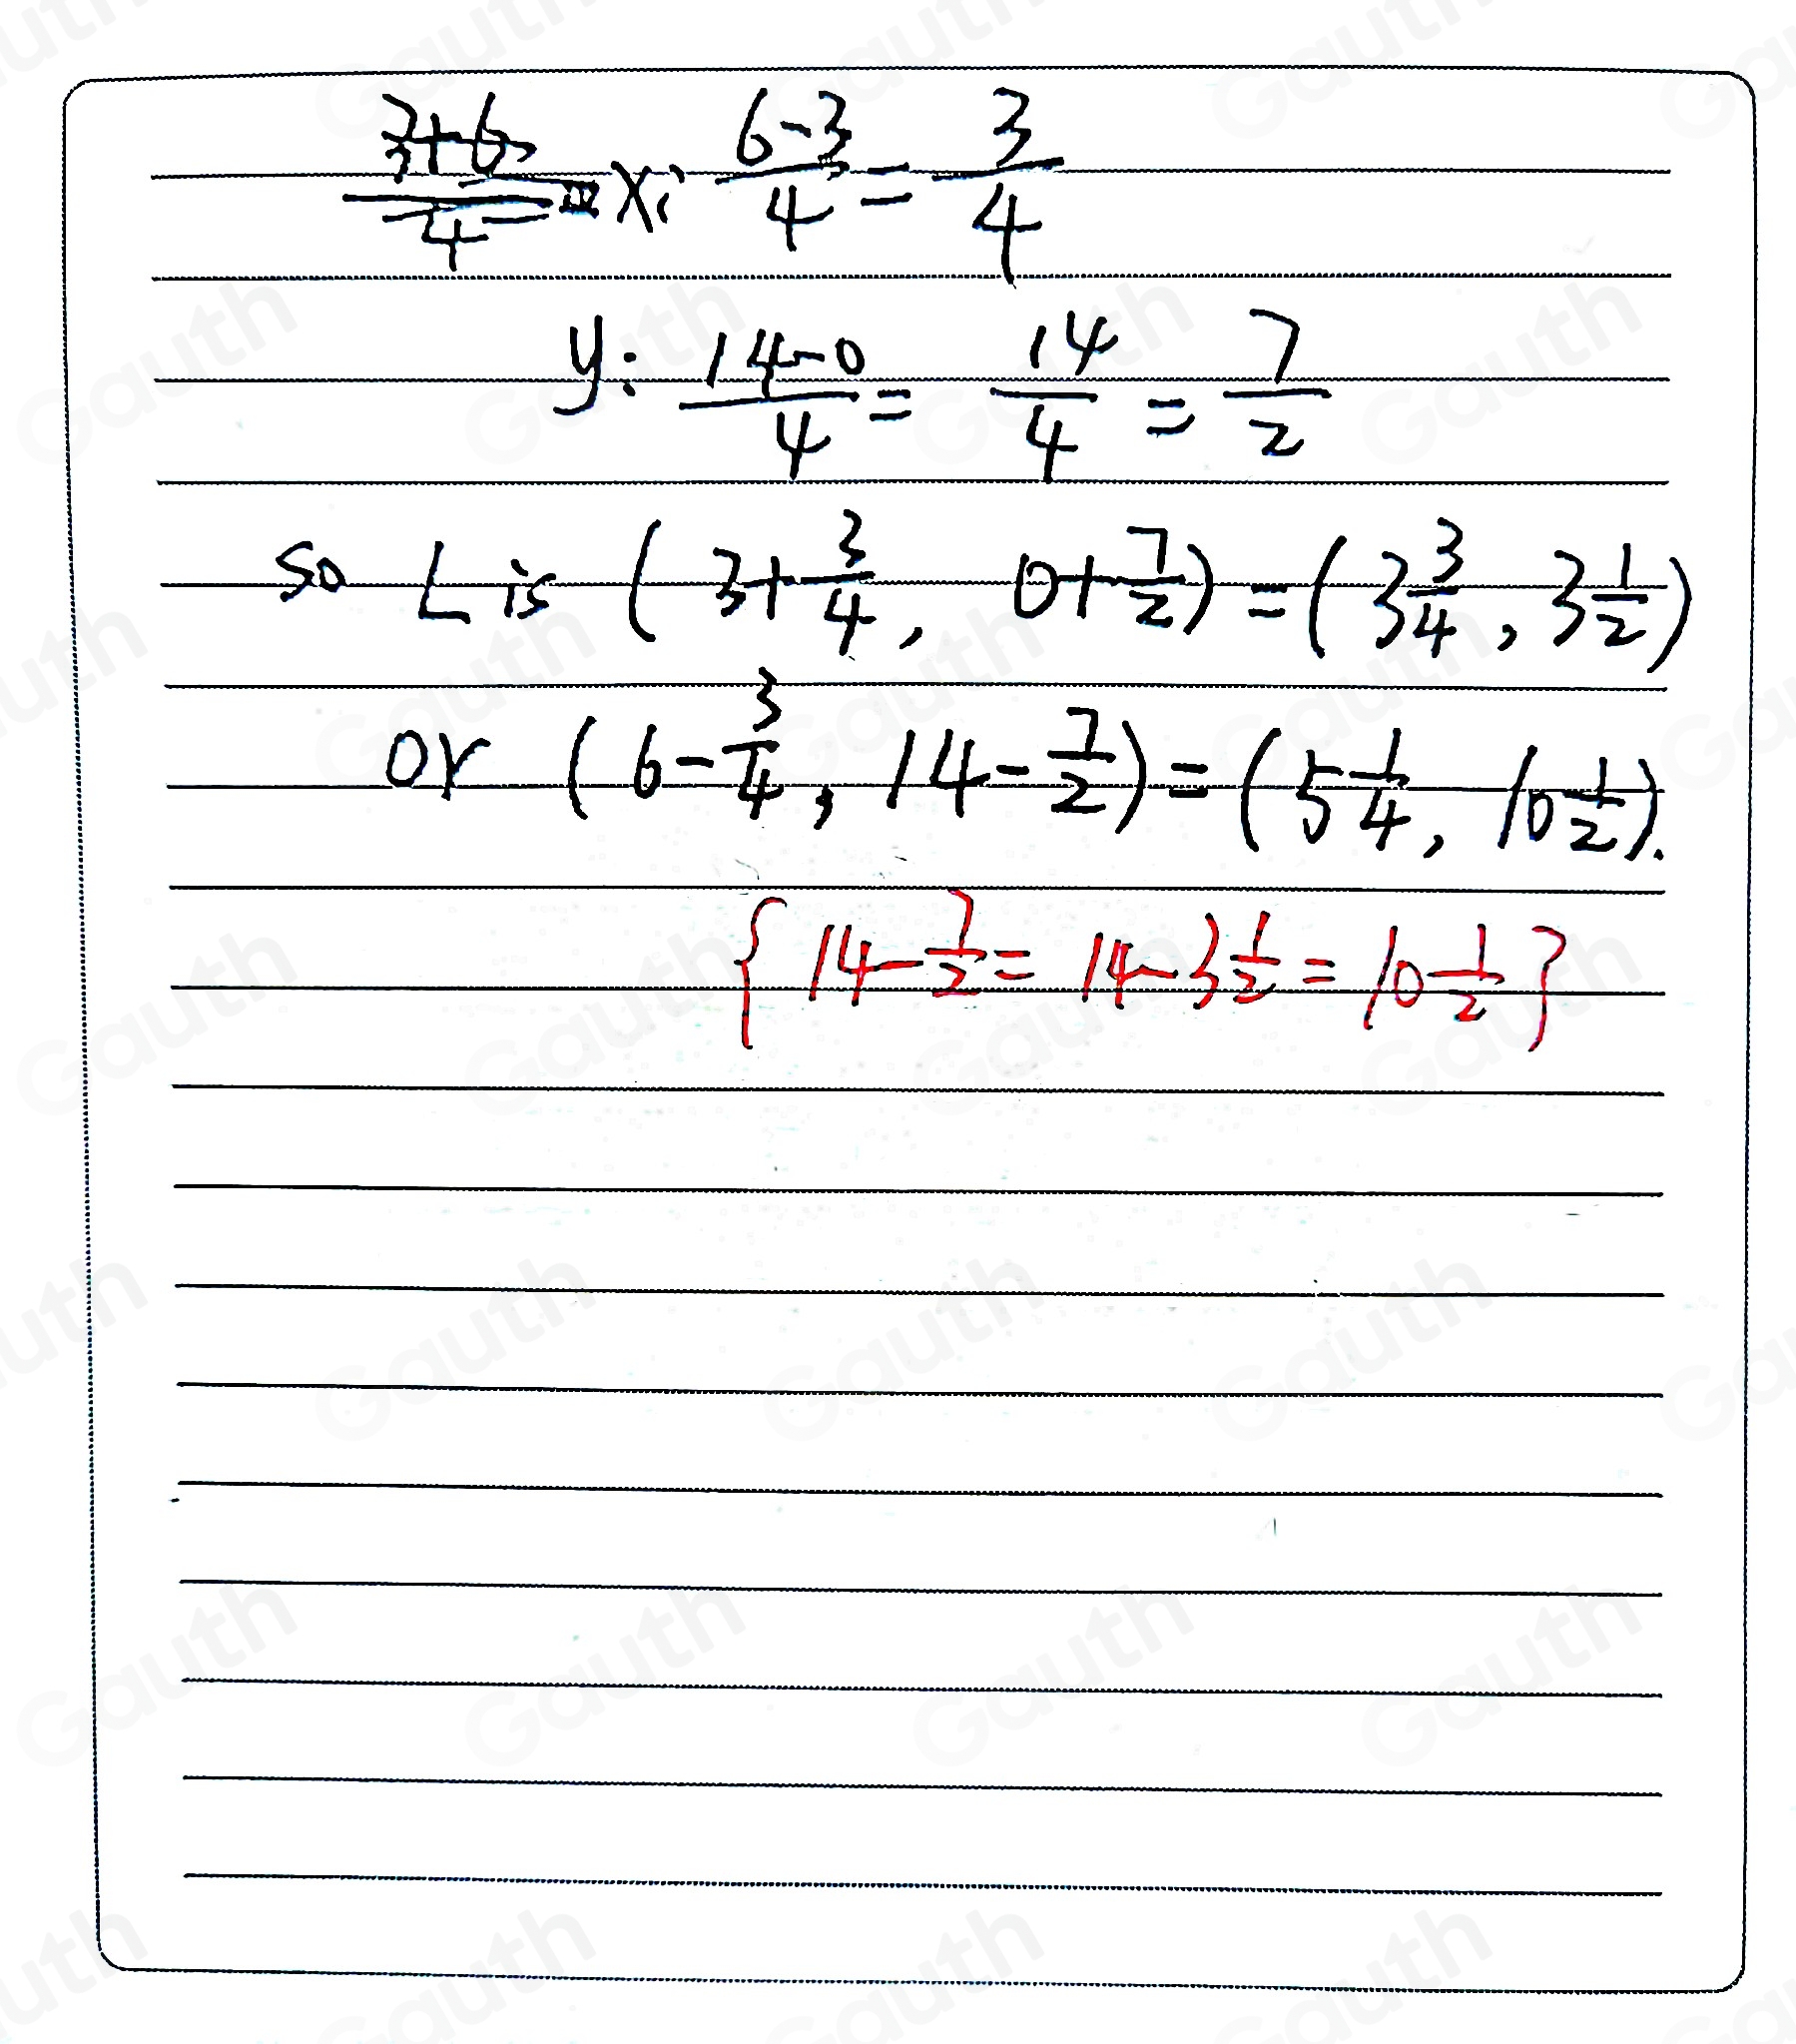 x: \frac{6-3}{4} = \frac{3}{4}
y: \frac{14-0}{4} = \frac{14}{4} = \frac{7}{2}
so L is (3+\frac{3}{4}, 0+\frac{7}{2}) = (3\frac{3}{4}, 3\frac{1}{2})
or (6-\frac{3}{4}, 14-\frac{7}{2}) = (5\frac{1}{4}, 10\frac{1}{2}).
{14-\frac{7}{2} = 14-3\frac{1}{2} = 10\frac{1}{2}}